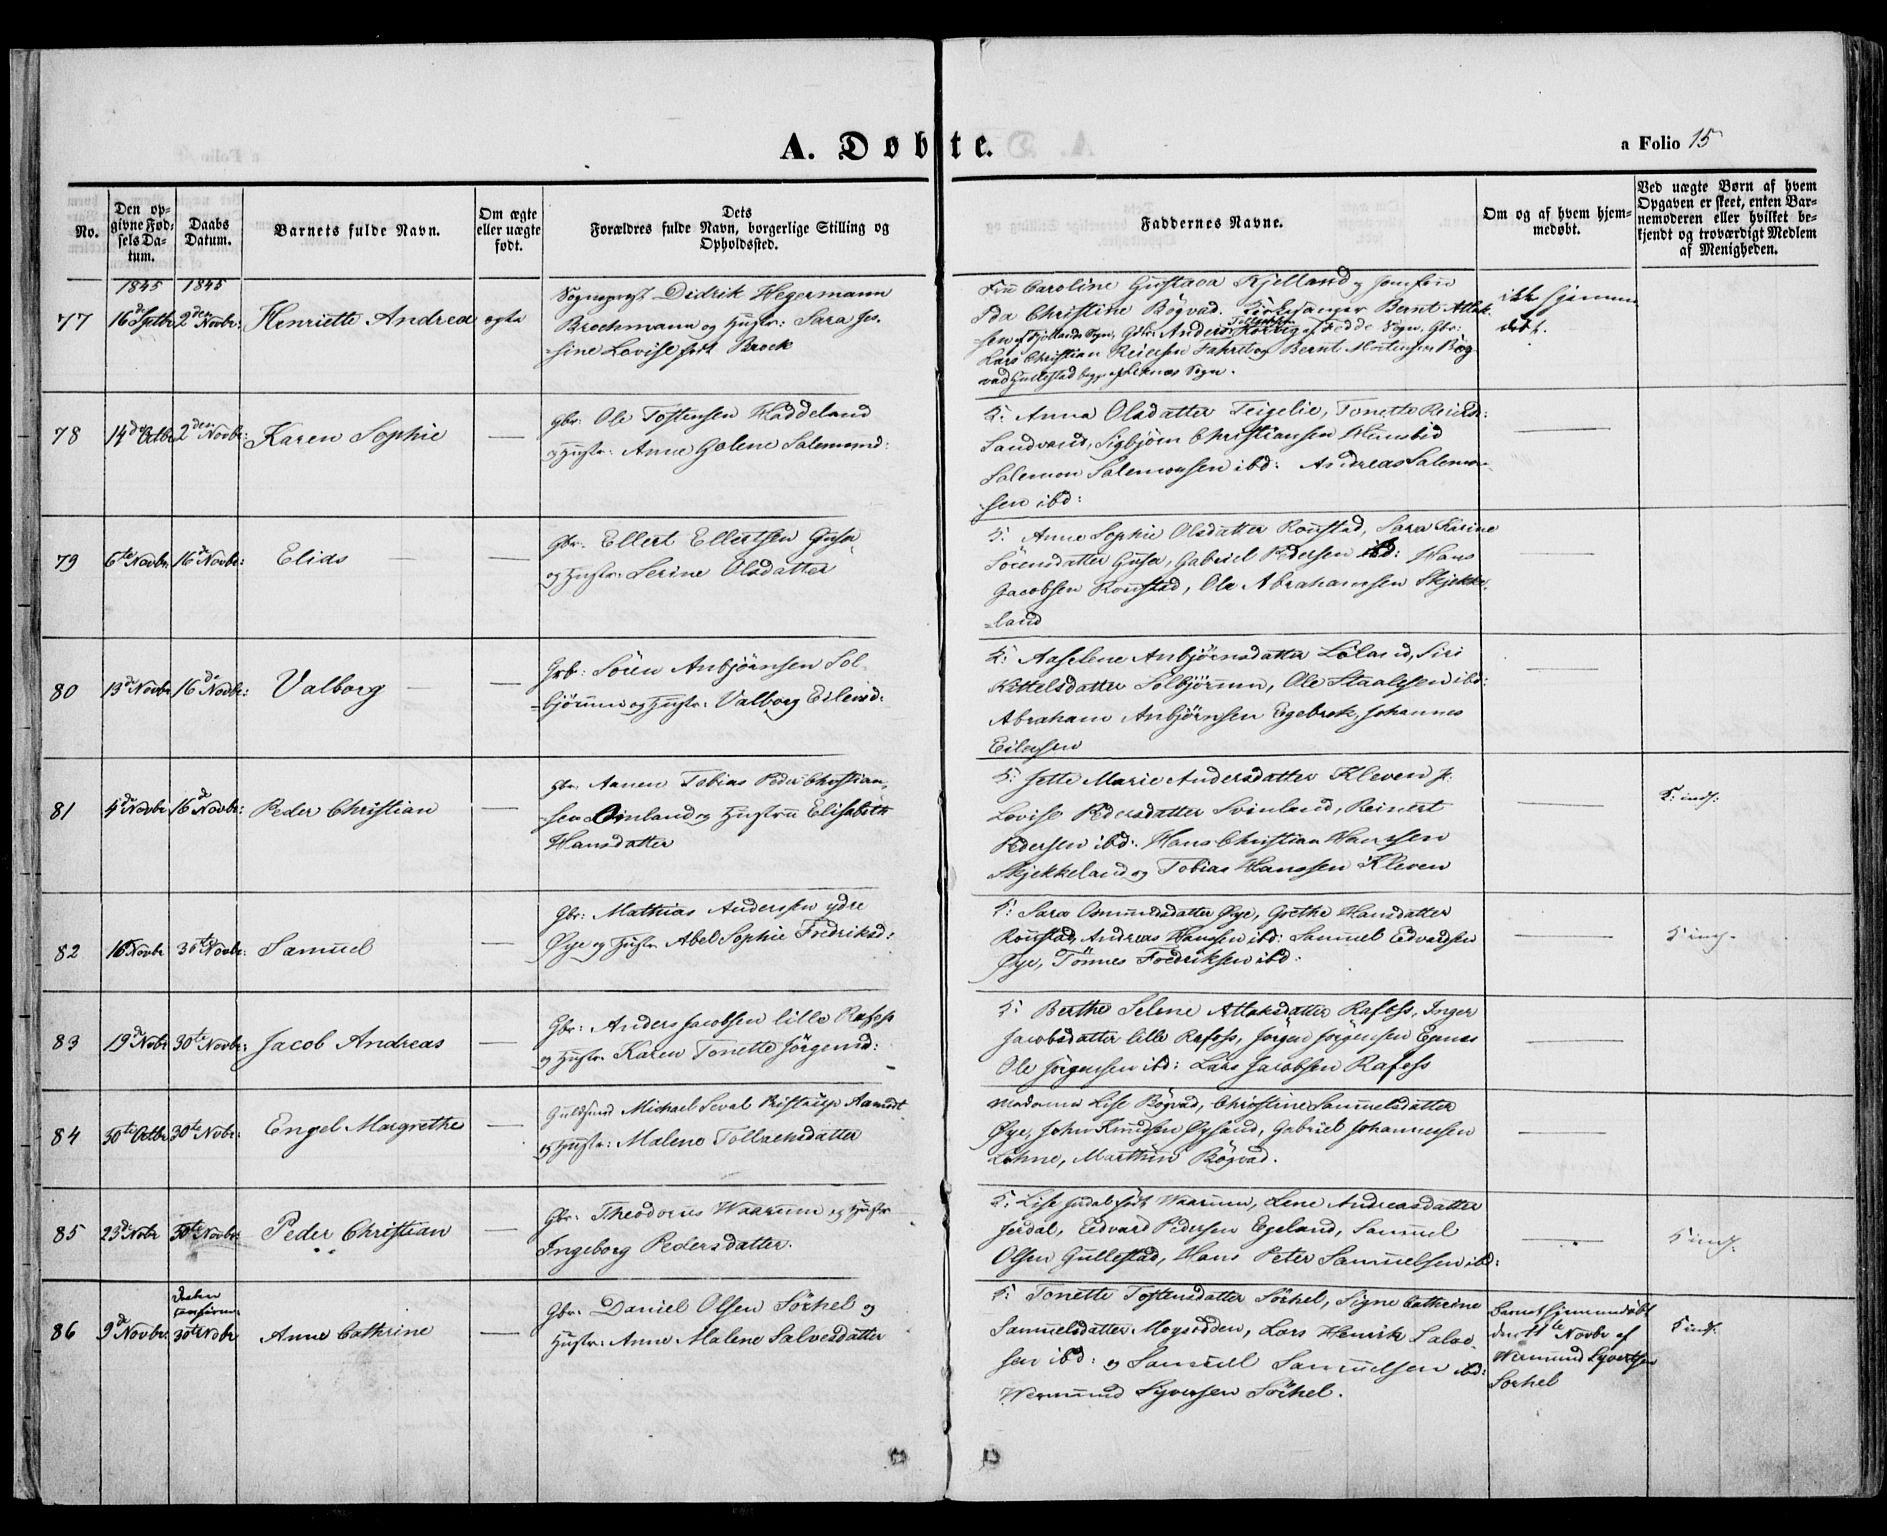 A. Døbte.
a Folio 15
No.
Den op-
givne Fød-
sels Da-
tum.
Daabs
Datum.
Barnets fulde Navn.
Om ægte
eller uægte
født.
Dets
Forældres fulde Navn, borgerlige Stilling og
Opholdssted.
Faddernes Navne.
Om og af hvem hjem-
medøbt.
Ved uægte Børn af hvem
Opgaven er skeet, enten Bar-
nemoderen eller hvilket be-
kjendt og troværdigt Medlem
af Menigheden.
1845 1845
77 16d Septbr 2den Novbr: Henriette Andrea ægte
Sogneprest Didrik Hegermann
Brochmann og Hustr: Sara Jo-
sine Lovise født Brock
Fru Caroline Gustava Kjelland og Jomfru
Ida Christine Bögvad. Kirkesanger Bernt Atlak-
sen af Fjotlands Sogn, Gbr: Anders Tollachsen Kørrig af Fedde Sogn, Gbr:
Lars Christian Reiersen Fahret og Bernt Mortensen Bög-
vad Gullestad begge af Leknes Sogn.
ikke hjemme
døbt.
78 14de Octbr 2den Novbr: Karen Sophie —
Gbr: Ole Tostensen Haddeland
og Hustr: Anne Golene Salemond:
K: Anna Olsdatter Teigelie, Tonette Reiersd:
Sandvand, Sigbjörn Christiansen Hunsbed
Salemon Salemonsen ibd: Andreas Salemon-
sen ibd:
—
79 6te Novbr 16d Novbr: Elias —
Gbr: Ellert Ellertsen Gusa
og Hustr: Serine Olsdatter
K: Anne Sophie Olsdatter Roustad, Sara Karine
Sörensdatter Gusa, Gabriel Pedersen ibd: Hans
Jacobsen Roustad, Ole Abrahamsen Skjekke-
-land
—
80 13d Novbr 16d Novbr: Valborg —
Grb: Sören Anbjörnsen Sol-
-björnum og Hustr: Valborg Eilevsd:
K: Aaselene Anbjörnsdatter Löland, Siri
Kittelsdatter Solbjörnun, Ole Staalesen ibd:
Abraham Anbjörnsen Egebrok, Johannes
Eilevsen
—
81 4d Novbr 16d Novbr: Peder Christian —
Gbr: Aanen Tobias Peder Christian-
sen Svinland og Hustru Elisabeth
Hansdatter
K: Jette Marie Andersdatter Kleven
Lovise Pedersdatter Svinland, Reinert
Pedersen ibd: Hans Christian Hanssen
Skjekkeland og Tobias Hanssen Kleven
— K: ind:
82 16 Novbr 30te Novbr: Samuel —
Gbr: Mathias Andersen ydre
Øye og Hustr Abel Sophie Fredriksd:
K: Sara Osmundsdatter Øye, Grethe Hansdatter
Roustad, Andreas Hanssen ibd: Samuel Edvardsen
Øye, Tönnes Fredriksen ibd:
— K ind:
83 19d Novbr 30te Novbr: Jacob Andreas —
Gbr: Anders Jacobsen lille Rafoss
og Hustr: Karen Tonette Jörgensd:
K: Berthe Selene Atlaksdatter Rafoss, Inger
Jacobsdatter lille Rafoss, Jörgen Jörgensen Egnes
Ole Jörgensen ibd: Lars Jacobsen Rafoss
—
84 30te Octbr 30te Novbr: Engel Margrethe —
Guldsmed Michael Seval Aamodt
og Hustr: Malene Tollachsdatter
Madame Lise Bögvad, Christine Samuelsdatter
Øye, John Knudsen Øysand, Gabriel Johannessen
Lohne, Marthin Bögvad.
—
85 23de Novbr 30te Novbr: Peder Christian —
Gbr: Theodorus Waarum og Hustr
Ingeborg Pedersdatter.
K: Lise Jerdal født Waarum, Lene Andreasdatter
Jerdal, Edvard Pedersen Egeland, Samuel
Olsen Gullestad, Hans Peter Samuelsen ibd:
— K ind:
86 9d Novbr: Daaben
confirm:
30te Novbr Anne Cathrine —
Gbr: Daniel Olsen Sörhel og
Hustr: Anne Malene Salvesdatter
K: Tonette Tostensdatter Sörhel, Signe Cathrine
Samuelsdatter Moysodden, Lars Henrik Salve-
sen ibd: og Samuel Samuelsen ibd:
Wermund Syversen Sörhel.
Barnet hjemmedøbt
den 11te Novbr af
Wermund Syvertsen
Sörhel
K ind: